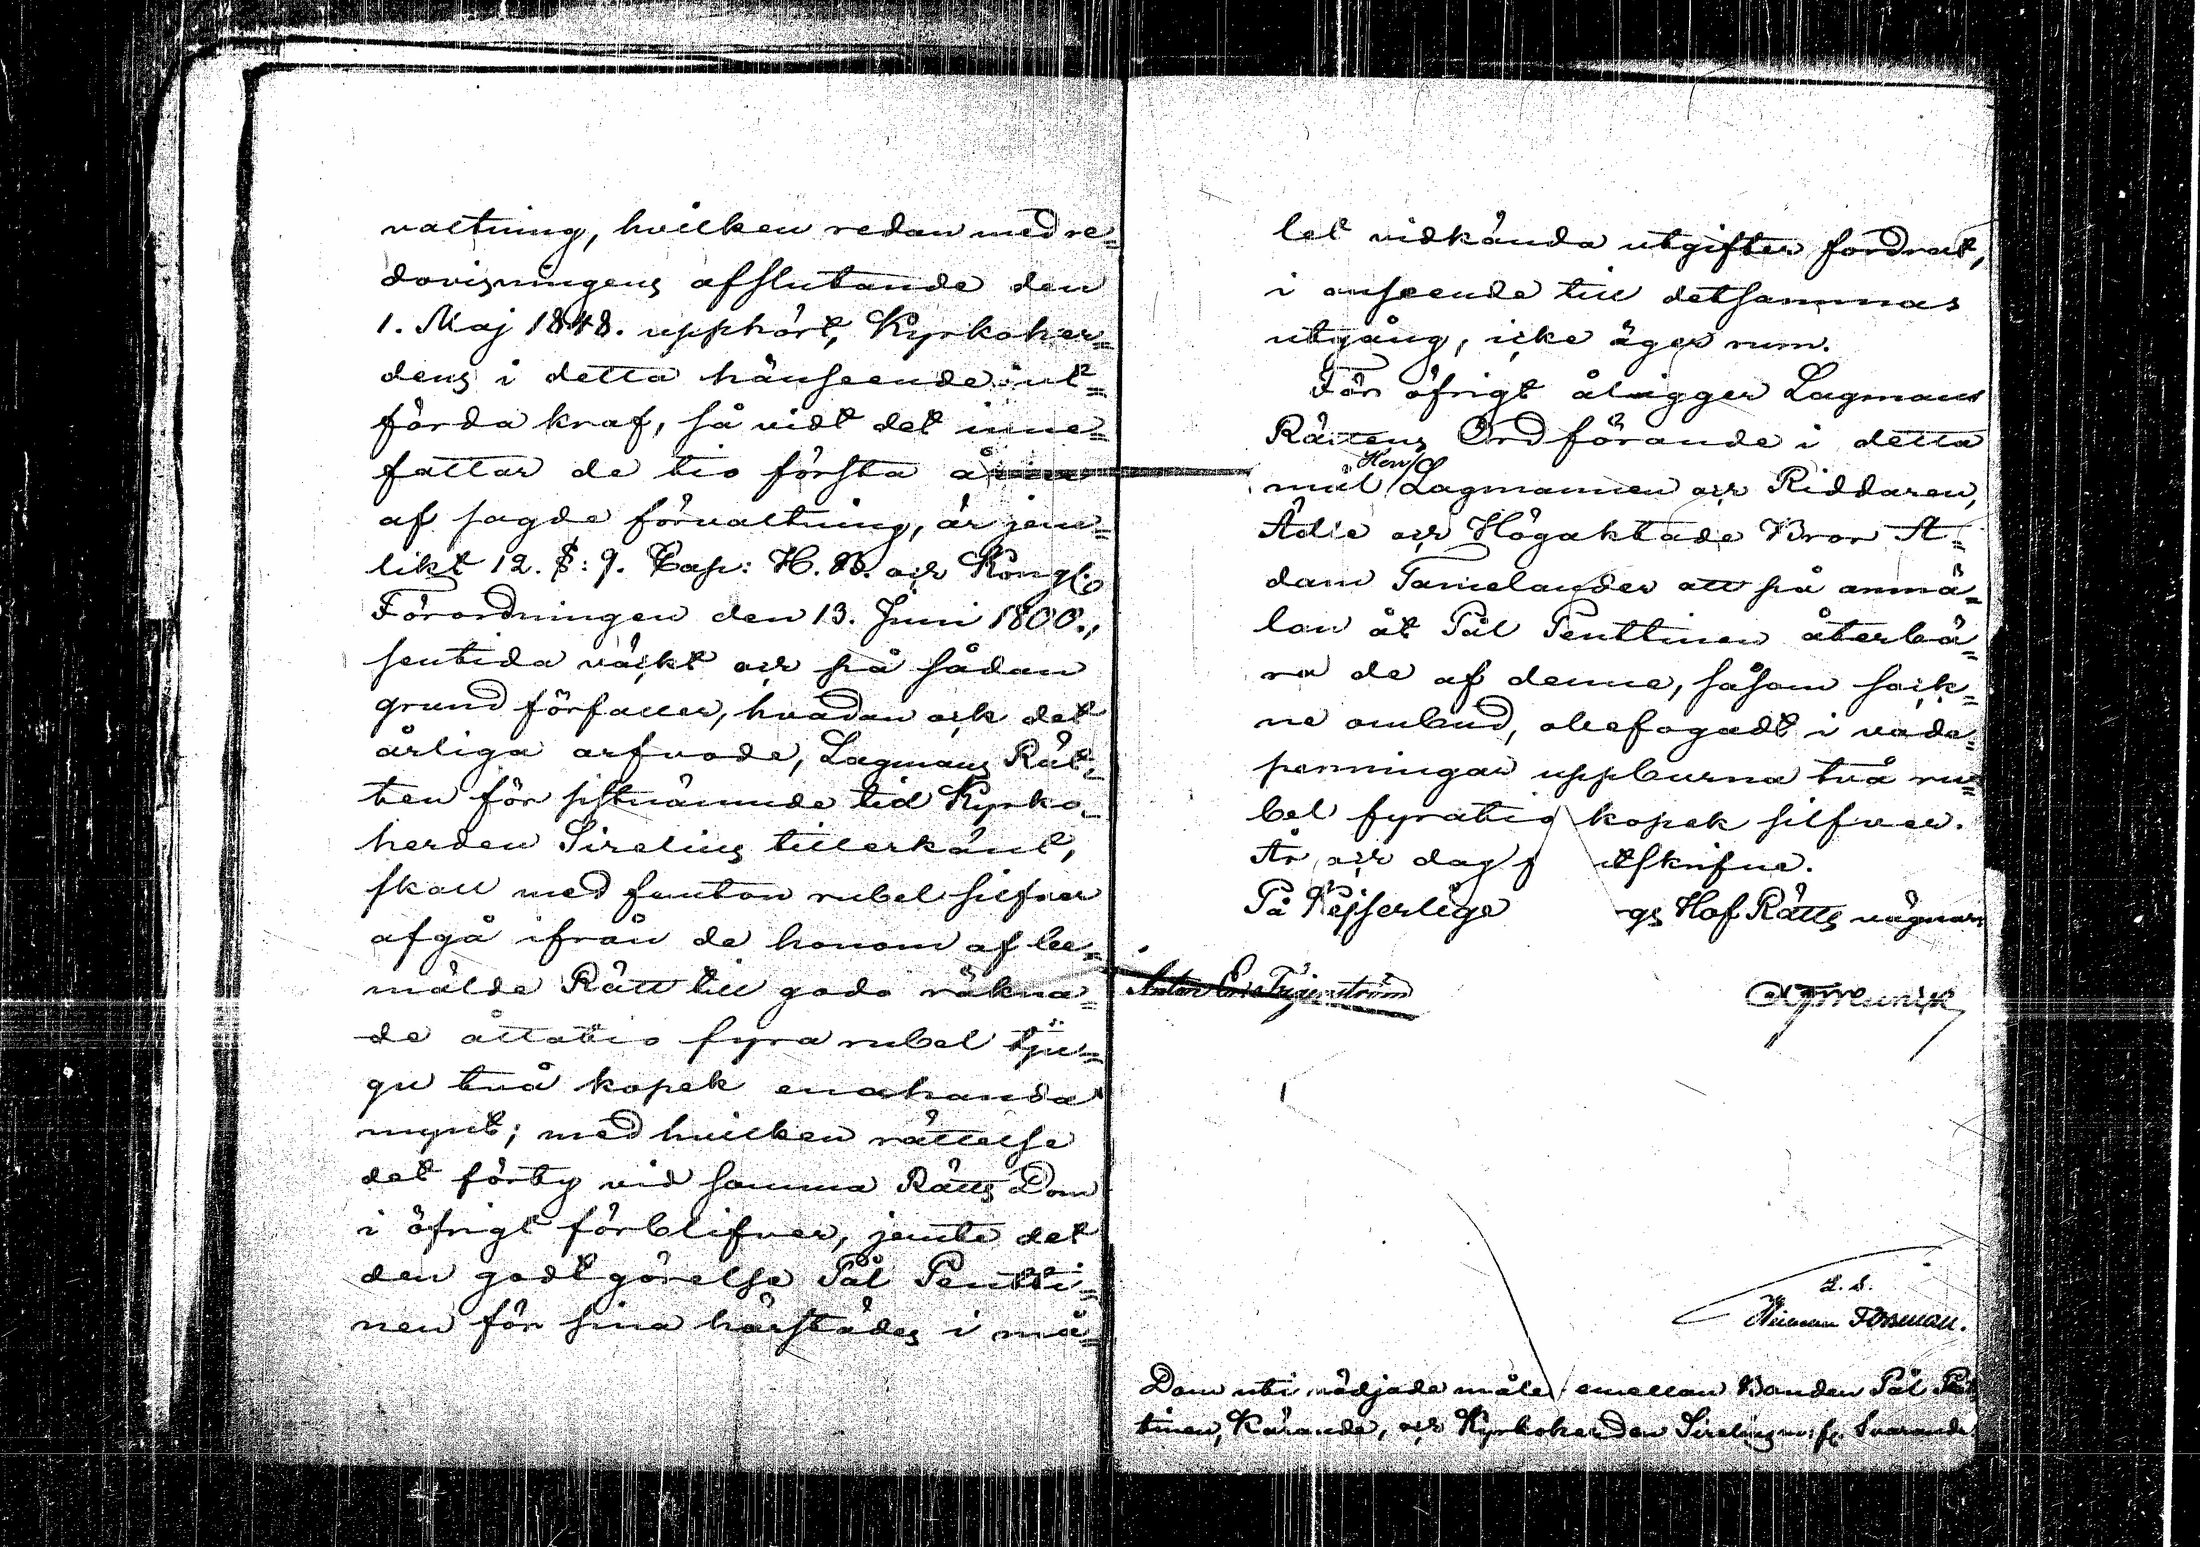 valtning, hvilken redan med re=
dovisningens afslutande den
1. Maj 1848. upphört, Kyrkoher=
dens i detta hänseende ut=
förda kraf, så vidt det inne=
fattar de tio första åren
af sagde förvaltning, är jem=
likt 12. §: 9. Cap: H. B. och Kongl.
Förordningen den 13. Juni 1800.,
sentida väckt och på sådan
grund förfaller, hvadan ock det
årliga arfvode, Lagmans Rät=
ten för sistnämnde tid Kyrko=
herden Sirelius tillerkänt,
skall med femton rubel silfver
afgå ifrån de honom af be=
mälde Rätt till godo räkna=
de åttatio fyra rubel tju=
gu två kopek enahanda
mynt; med hvilken rättelse
det förty vid samma Rätts Dom
i öfrigt förblifver, jemte det
den godtgörelse Pål Pentti=
nen för sina härstädes i må=
let vidkända utgifter fordrat,
i anseende till detsammas
utgång, icke äger rum.
För öfrigt åligger Lagmans
Rättens Ordförande i detta
mål Herr Lagmannen och Riddaren,
Ädle och Högaktade Bror A=
dam Tamelander att på anmä=
lan åt Pål Penttinen återbä=
ra de af denne, såsom sock=
ne ombud, obefogadt i vade=
penningar uppburna två ru=
bel fyratio kopek silfver.
År och dag utskrifne.
På Kejserlige gs Hof Rätts vägnar
Anton
L. S.
Forsman.
Dom uti vädjade målet emellan Bonden Pål Pent
tinen, Kärande, och Kyrkoherden Sirelius m: fl. Svarande